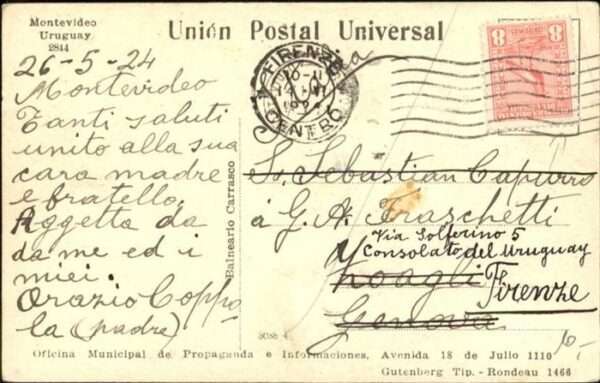 Montevideo
Uruguay
2844
Unión Postal Universal
26-5-24
Montevideo
Tanti saluti
unito alla sua
cara madre
e fratello.
Aggetta da
da me ed i
miei.
Orazio Coppo
la (padre)
Balneario Carrasco
FIRENZE
CENTRO
8
8
Sr. Sebastian Capurro
á G. A. Fraschetti
Via Solferino 5
Consolato del Uruguay
Zoagli
Firenze
Genova
10-
Oficina Municipal de Propaganda e Informaciones, Avenida 18 de Julio 1110
Gutenberg Tip. - Rondeau 1466